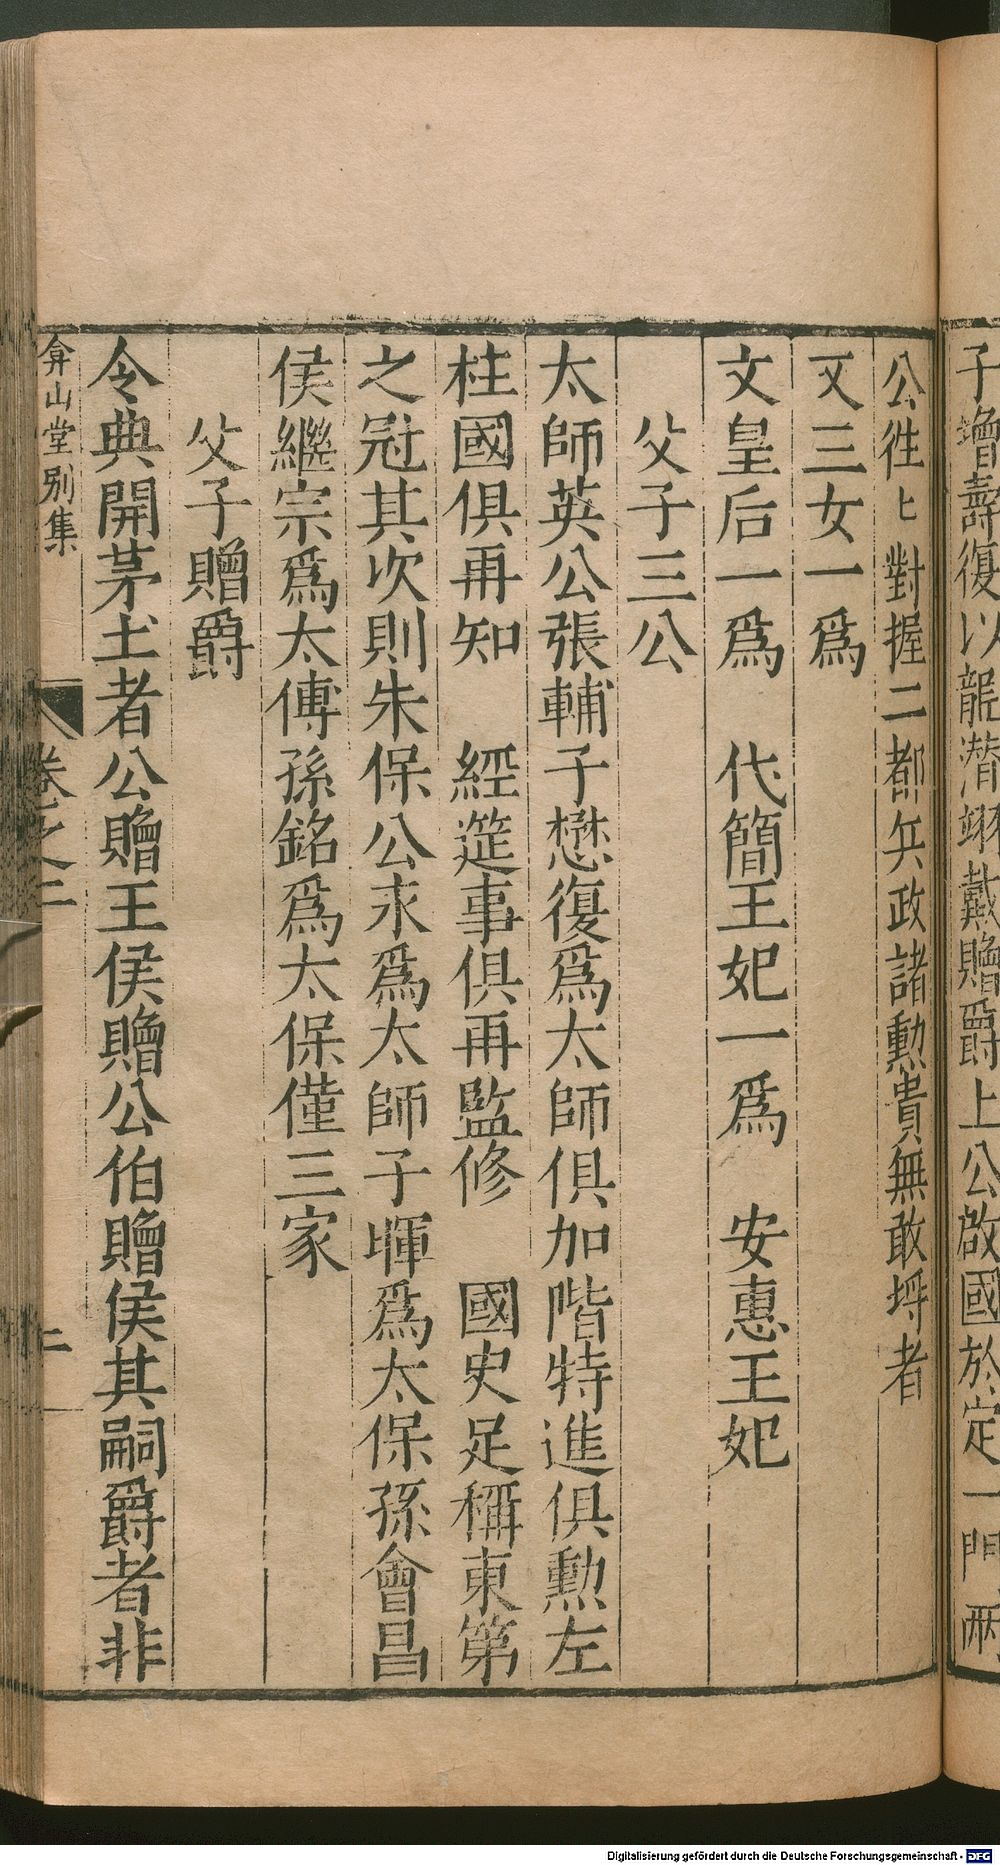 子增壽復以龍潛翊戴贈爵上公啟國於定一門兩
公徃〻對握二都兵政諸勲貴無敢埒者
又三女一爲
文皇后一爲　代簡王妃一爲　安惠王妃
父子三公
太師英公張輔子懋復爲太師俱加階特進俱勲左
柱國俱再知　經筵事俱再監修　國史足稱東第
之冠其次則朱保公永爲太師子暉爲太保孫會昌
侯繼宗爲太傅孫銘爲太保僅三家
父子贈爵
令典開茅土者公贈王侯贈公伯贈侯其嗣爵者非
弇山堂別集
卷之二
二
Digitalisierung gefördert durch die Deutsche Forschungsgemeinschaft - DFG